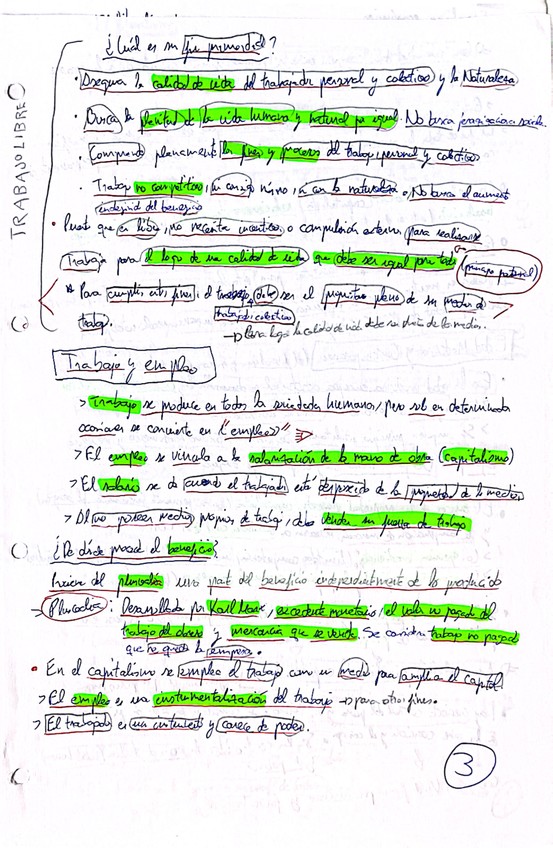 ¿Cuál es su fin primordial?
TRABAJO LIBRE
· Asegura la calidad de vida del trabajador personal y colectivo y la Naturaleza
· Busca la plenitud de la vida humana y natural por igual. No busca jerarquización social.
· Comprende plenamente los fines y procesos del trabajo personal y colectivo
· Trabajo no competitivo, ni consigo mismo, ni con la naturaleza. No busca el aumento
endespid del beneficio
· Puesto que es libre, no necesita incentivos o compulsión externa para realizarse
Trabaja para el logo de una calidad de vida que debe ser igual para todos
(principio patrimonial)
* Para cumplir estos fines, el trabajador debe ser el propietario pleno de sus medios de
trabajo.
trabajo colectivo
→ Para lograr la calidad de vida debe ser dueño de los medios.
Trabajo y empleo
> Trabajo se produce en todas las sociedades humanas, pero solo en determinadas
ocasiones se convierte en "empleo"
> El empleo se vincula a la salarización de la mano de obra (capitalismo)
> El salario se da cuando el trabajador está desposeído de la propiedad de los medios
> Al no poseer medios propios de trabajo, debe vender su fuerza de trabajo
¿De dónde procede el beneficio?
Procede del plusvalía, una parte del beneficio independientemente de lo producido
Plusvalía: Desarrollada por Karl Marx, excedente monetario, el valor no pagado del
trabajo del obrero y mercancía que se vende. Se considera trabajo no pagado
que se queda la empresa.
· En el capitalismo se emplea el trabajo como un medio para ampliar el capital.
> El empleo es una instrumentalización del trabajo → para otros fines.
> El trabajador es un instrumento y carece de poder.
3